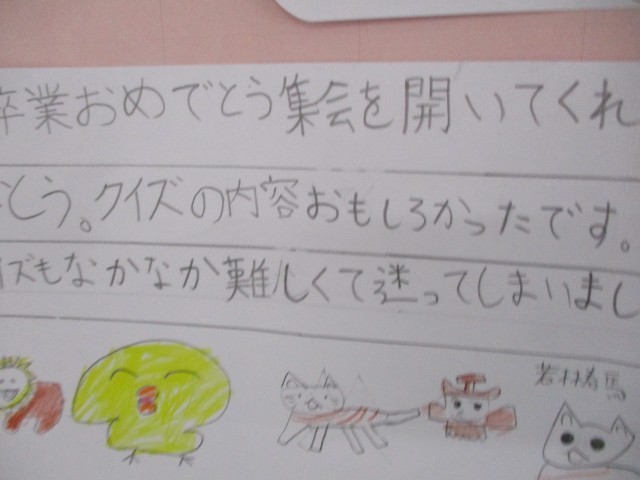 卒業おめでとう集会を開いてくれ
とう。クイズの内容おもしろかったです。
イズもなかなか難しくて迷ってしまいまし
若林有馬